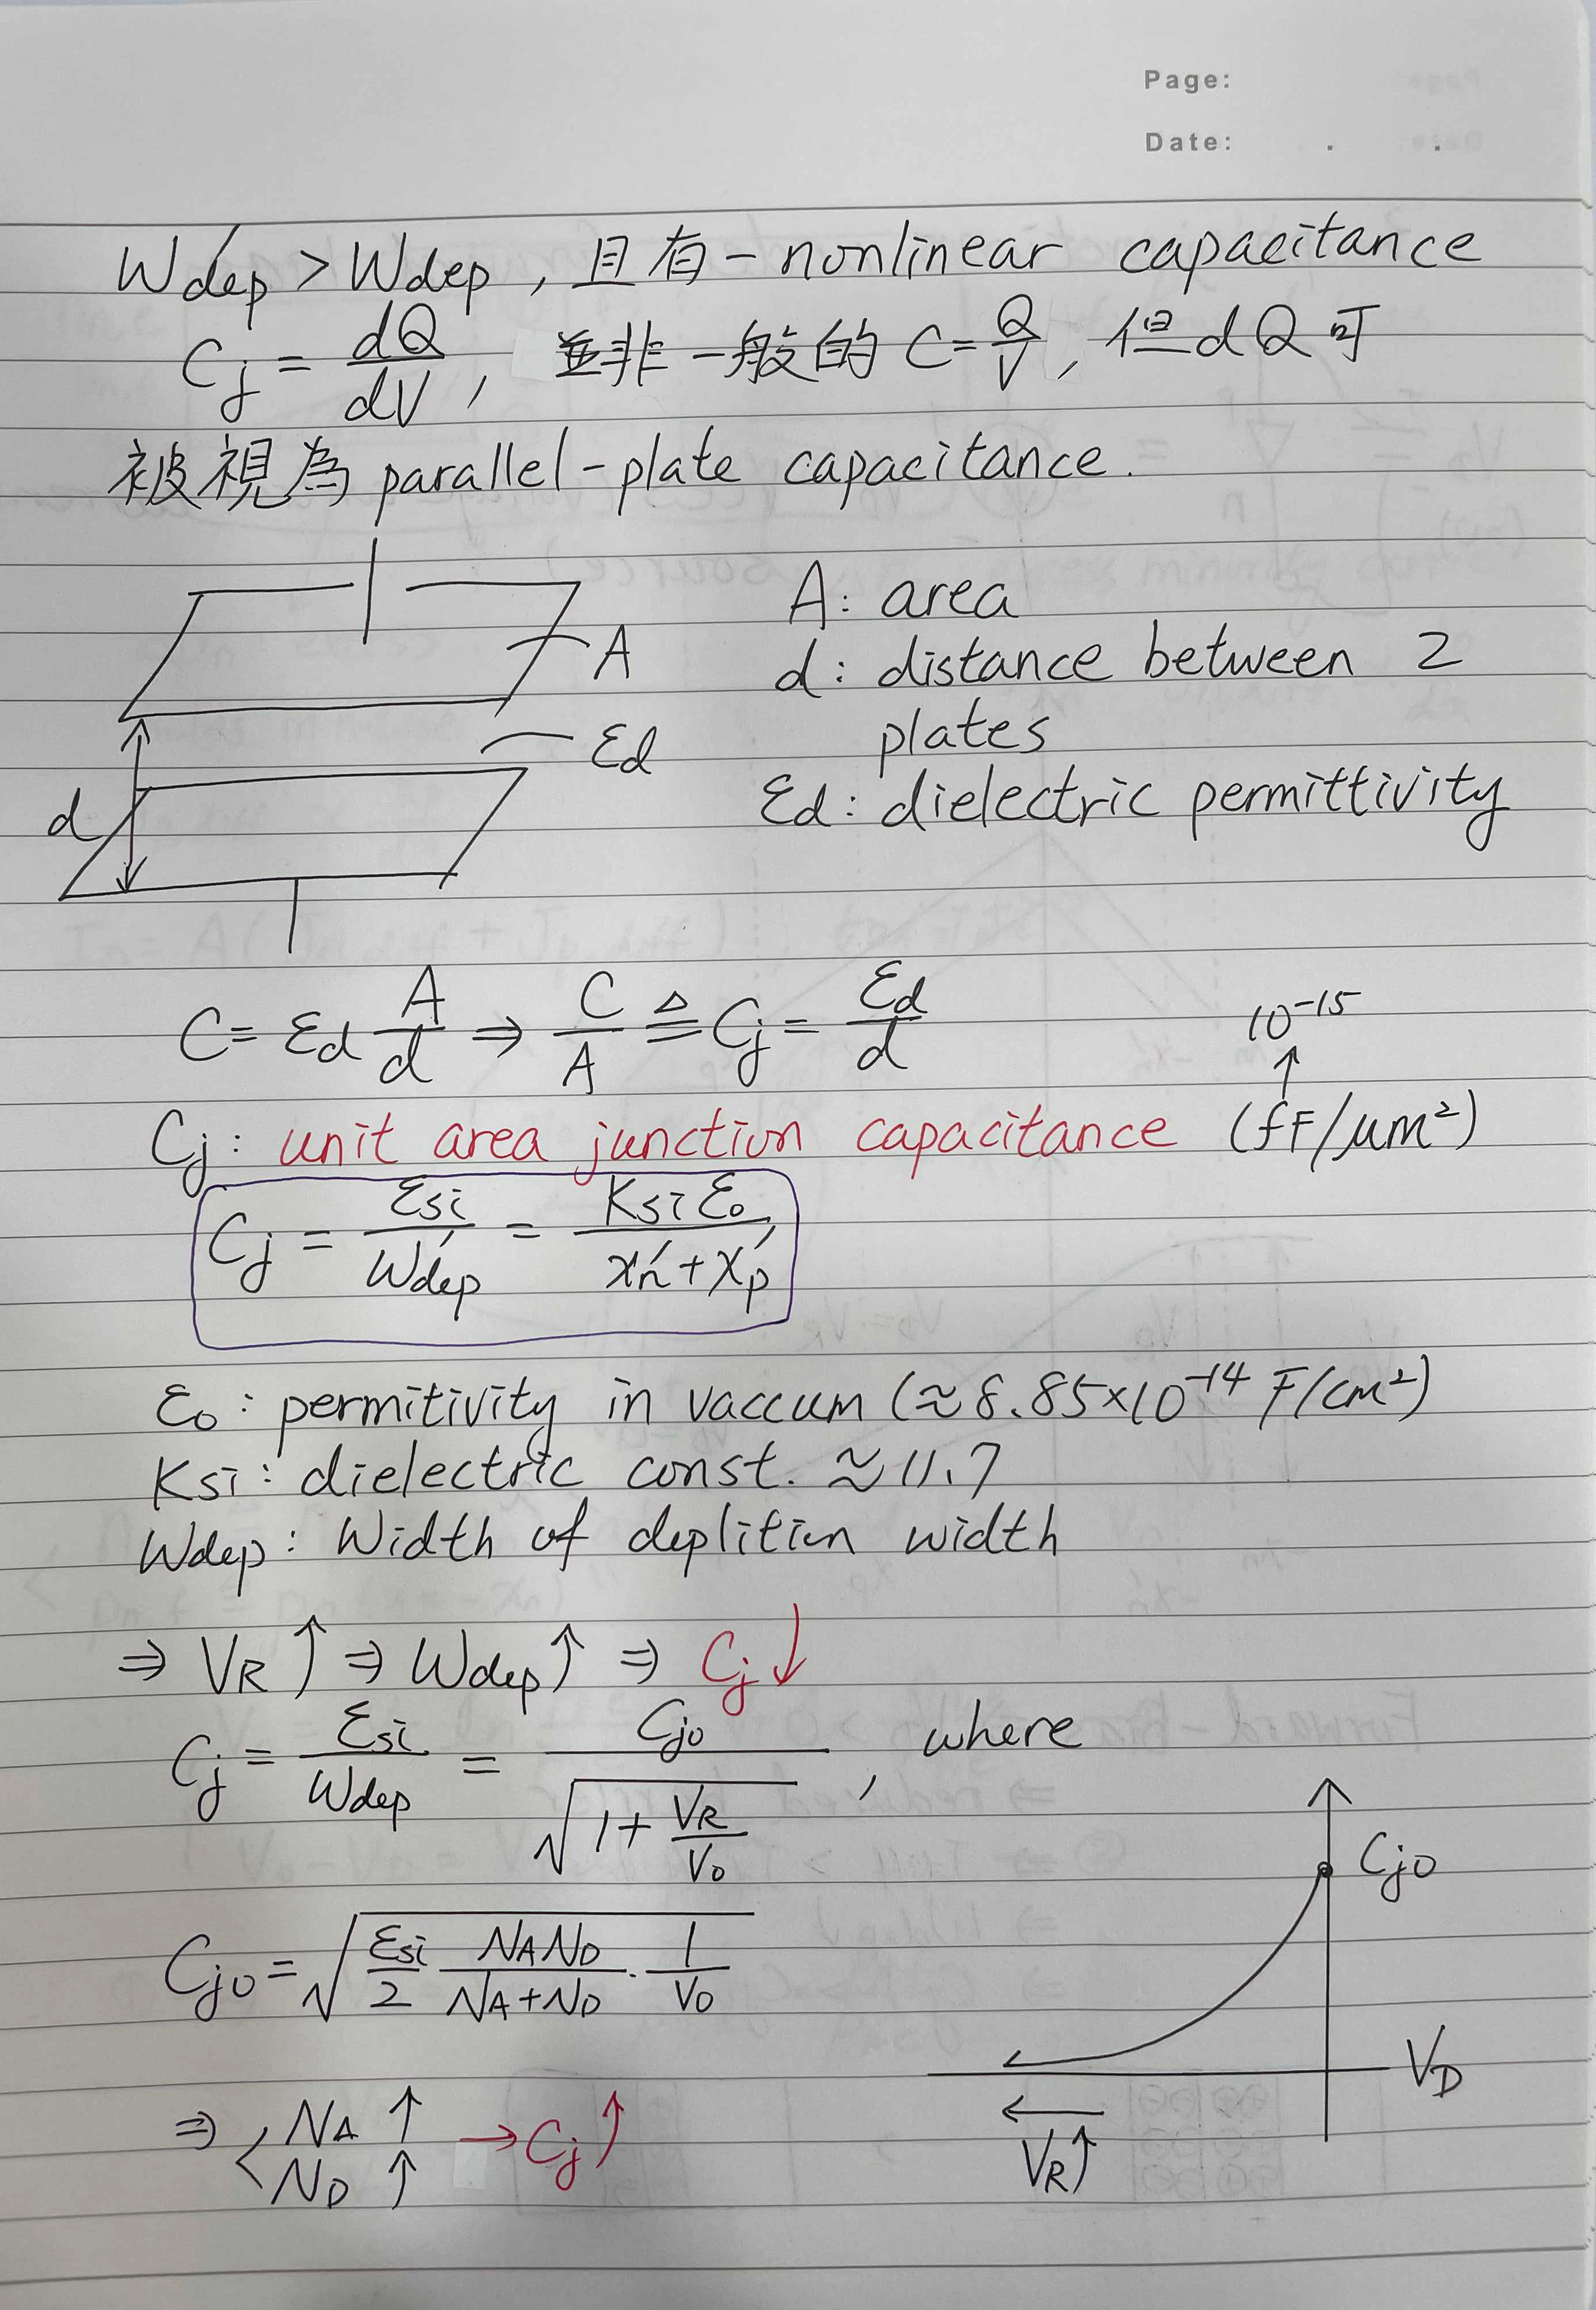 Page:
Date: . .
W'dep > Wdep , 且有一 nonlinear capacitance
Cj = dQ/dV, 並非一般的 C=Q/V, 但 dQ 可
被視為 parallel-plate capacitance.
A
d
εd
A: area
d: distance between 2
plates
εd: dielectric permittivity
C = εd A/d ⇒ C/A ≜ Cj = εd/d
10⁻¹⁵
↑
Cj: unit area junction capacitance (fF/μm²)
Cj = εsi/W'dep = Ksi ε₀/(x'n + x'p)
ε₀: permitivity in vaccum (≈8.85×10⁻¹⁴ F/cm²)
Ksi: dielectric const. ≈ 11.7
Wdep: Width of deplition width
⇒ VR ↑ ⇒ Wdep ↑ ⇒ Cj ↓
Cj = εsi/Wdep = Cj0/√(1 + VR/V0) , where
Cj0 = √(εsi/2 NAND/(NA+ND) · 1/V0)
⇒ < NA ↑ → Cj ↑
ND ↑
Cj0
VD
←
VR↑